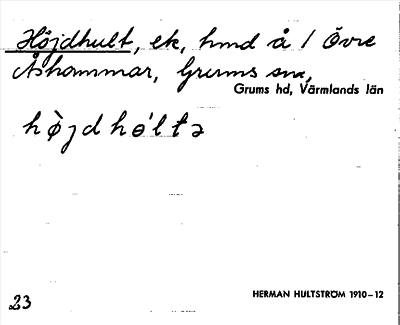 Höjdhult, ek, hmd å 1 Övre
Åshammar, Grums sn,
Grums hd, Värmlands län
hö̀jdhɵ́ltə
HERMAN HULTSTRÖM 1910–12
23